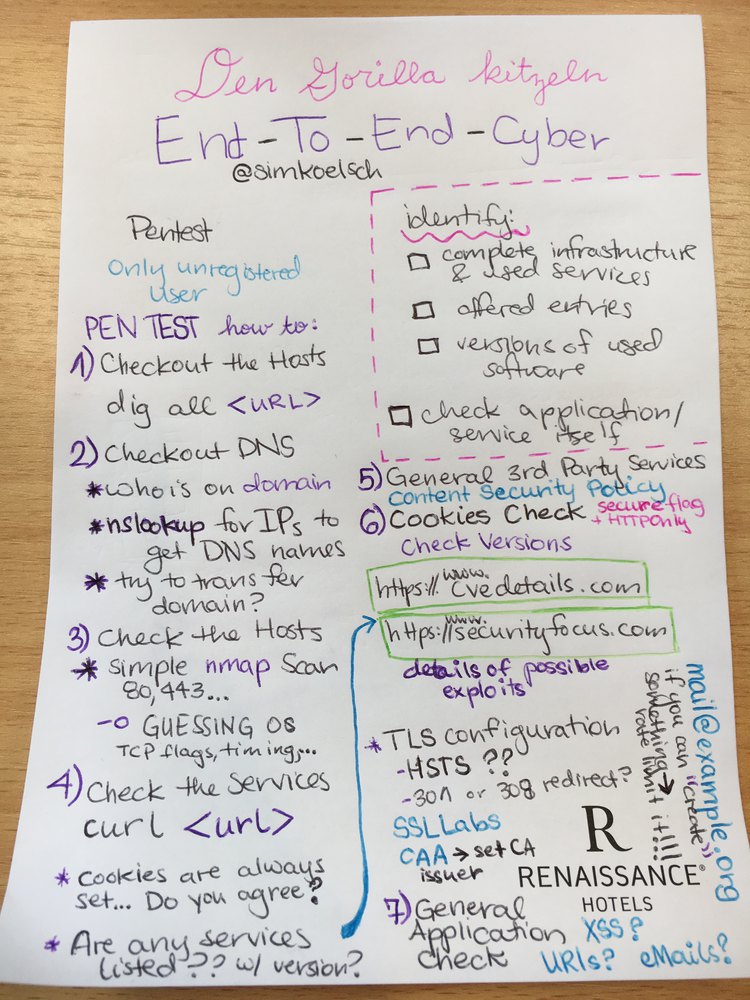 Den Gorilla kitzeln
End-To-End-Cyber
@simkoelsch
Pentest
Only unregistered
user
PEN TEST how to:
1) Checkout the Hosts
dig all <URL>
2) Checkout DNS
* whois on domain
* nslookup for IPs to
get DNS names
* try to transfer
domain?
3) Check the Hosts
* simple nmap Scan
80,443...
-o GUESSING OS
TCP flags, timing,...
4) Check the Services
curl <url>
* cookies are always
set... Do you agree?
* Are any services
listed?? w/ version?
identify:
☐ complete infrastructure
& used services
☐ offered entries
☐ versions of used
software
☐ check application/
service itself
5) General 3rd Party Services
Content Security Policy
6) Cookies Check secure flag
+ HTTPOnly
Check Versions
https://www.cvedetails.com
https://www.securityfocus.com
details of possible
exploits
* TLS configuration
- HSTS ??
- 301 or 308 redirect?
SSLLabs
CAA → set CA
issuer
mail@example.org
if you can "create"
something →
rate limit it!!!!
R
RENAISSANCE®
HOTELS
7) General
Application XSS?
Check URIs? eMails?